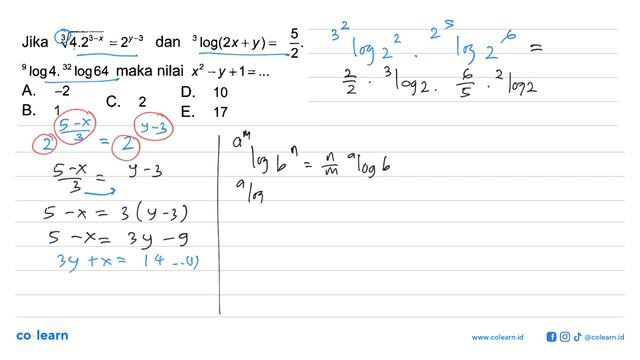 Jika ∛4.2^(3-x) = 2^(y-3) dan ³log(2x + y) = 5/2.
⁹log4.³²log64 maka nilai x² – y + 1 = ...
A. –2
B. 1
C. 2
D. 10
E. 17
3² log 2² . 2⁵ log 2⁶ =
2/2 . ³log 2 . 6/5 . ²log 2
2^((5-x)/3) = 2^(y-3)
(5-x)/3 = y-3
5 - x = 3(y-3)
5 - x = 3y - 9
3y + x = 14 ...(1)
a^m log b^n = n/m ᵃlog b
ᵃlog
co learn
www.colearn.id
@colearn.id